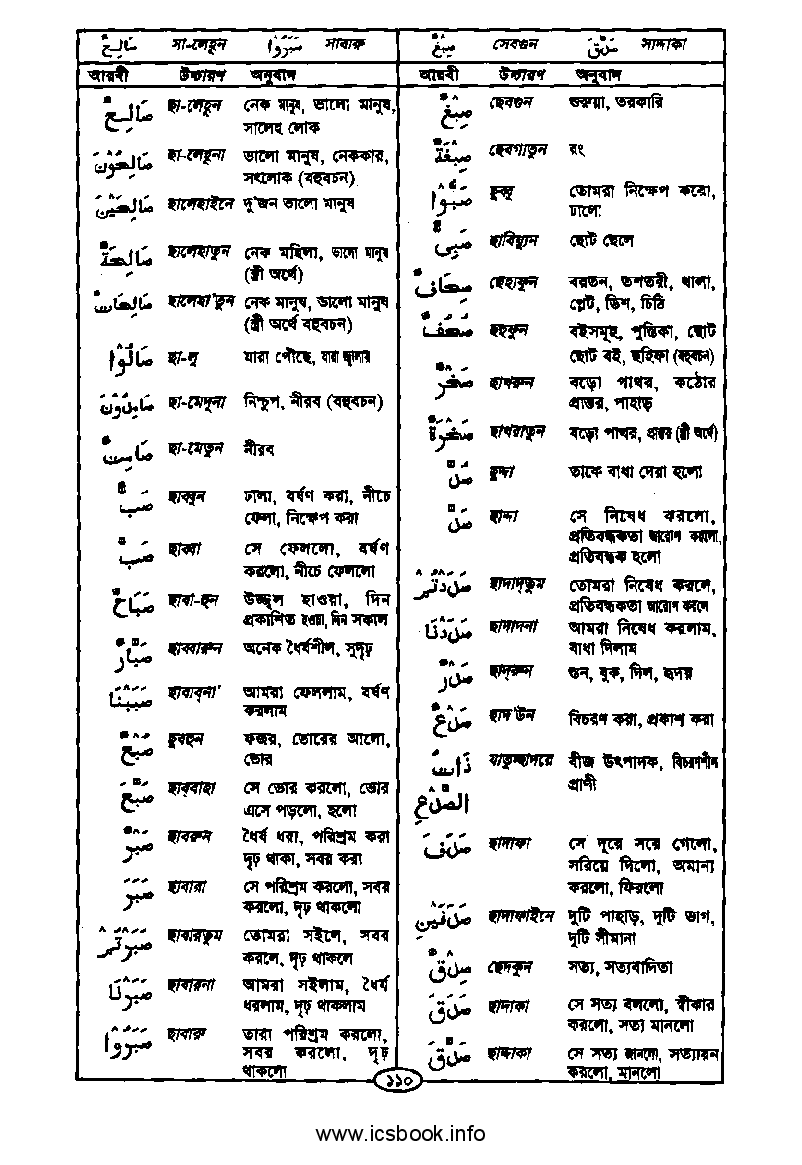 صَالِحٌ সা-লেহুন صَبَرُوْا সাবারু
আরবী উচ্চারণ অনুবাদ
صَالِحٌ ছা-লেহুন নেক মানুষ, ভালো মানুষ,
সালেহ লোক
صَالِحُوْنَ ছা-লেহুনা ভালো মানুষ, নেককার,
সৎলোক (বহুবচন)
صَالِحَيْنِ ছালেহাইনে দু'জন ভালো মানুষ
صَالِحَةٌ ছালেহাতুন নেক মহিলা, ভালো মানুষ
(স্ত্রী অর্থে)
صَالِحَاتٌ ছালেহা'তুন নেক মানুষ, ভালো মানুষ
(স্ত্রী অর্থে বহুবচন)
صَالُوْا ছা-লু যারা পৌছে, যারা জ্বালায়
صَامِتُوْنَ ছা-মেতুনা নিশ্চুপ, নীরব (বহুবচন)
صَامِتٌ ছা-মেতুন নীরব
صَبٌّ ছাব্বুন ঢালা, বর্ষণ করা, নীচে
ফেলা, নিক্ষেপ করা
صَبَّ ছাব্বা সে ফেললো, বর্ষণ
করলো, নীচে ফেললো
صَبَاحٌ ছাবা-হুন উজ্জ্বল হাওয়া, দিন
প্রকাশিত হওয়া, দিন সকাল
صَبَّارٌ ছাব্বারুন অনেক ধৈর্যশীল, সুদৃঢ়
صَبَبْنَا ছাবাব্না' আমরা ফেললাম, বর্ষণ
করলাম
صُبْحٌ ছুবহুন ফজর, ভোরের আলো,
ভোর
صَبَّحَ ছাব্বাহা সে ভোর করলো, ভোর
এসে পড়লো, হলো
صَبْرٌ ছাবরুন ধৈর্য ধরা, পরিশ্রম করা
দৃঢ় থাকা, সবর করা
صَبَرَ ছাবারা সে পরিশ্রম করলো, সবর
করলো, দৃঢ় থাকলো
صَبَرْتُمْ ছাবারতুম তোমরা সইলে, সবর
করলে, দৃঢ় থাকলে
صَبَرْنَا ছাবারনা আমরা সইলাম, ধৈর্য
ধরলাম, দৃঢ় থাকলাম
صَبَرُوْا ছাবারু তারা পরিশ্রম করলো,
সবর করলো, দৃঢ়
থাকলো
صِبْغٌ সেবগুন صَدَّقَ সাদ্দাকা
আরবী উচ্চারণ অনুবাদ
صِبْغٌ ছেবগুন শুরুয়া, তরকারি
صِبْغَةٌ ছেবগাতুন রং
صُبُّوْا ছুব্বু তোমরা নিক্ষেপ করো,
ঢালো
صَبِىٌّ ছাবিয়্যুন ছোট ছেলে
صِحَافٌ ছেহাফুন বরতন, তশতরী, থালা,
প্লেট, ডিশ, চিঠি
صُحُفٌ ছুহুফুন বইসমূহ, পুস্তিকা, ছোট
ছোট বই, ছহিফা (বহুবচন)
صَخْرٌ ছাখরুন বড়ো পাথর, কঠোর
প্রান্তর, পাহাড়
صَخْرَةٌ ছাখরাতুন বড়ো পাথর, প্রান্তর (স্ত্রী অর্থে)
صُدَّ ছুদ্দা তাকে বাধা দেয়া হলো
صَدَّ ছাদ্দা সে নিষেধ করলো,
প্রতিবন্ধকতা আরোপ করলো,
প্রতিবন্ধক হলো
صَدَدْتُمْ ছাদাদ্তুম তোমরা নিষেধ করলে,
প্রতিবন্ধকতা আরোপ করলে
صَدَدْنَا ছাদাদনা আমরা নিষেধ করলাম,
বাধা দিলাম
صَدْرٌ ছাদ্রুন গুন, বুক, দিল, হৃদয়
صَدْعٌ ছাদ'উন বিচরণ করা, প্রকাশ করা
ذَاتُ যাতুচ্ছাদয়ে বীজ উৎপাদক, বিচরণশীল
প্রাণী
الصَّدْعِ
صَدَفَ ছাদাফা সে দূরে সরে গেলো,
সরিয়ে দিলো, অমান্য
করলো, ফিরলো
صَدَفَيْنِ ছাদাফাইনে দুটি পাহাড়, দুটি ভাগ,
দুটি সীমানা
صِدْقٌ ছেদকুন সত্য, সত্যবাদিতা
صَدَقَ ছাদাকা সে সত্য বললো, স্বীকার
করলো, সত্য মানলো
صَدَّقَ ছাদ্দাকা সে সত্য জানলো, সত্যায়ন
করলো, মানলো
১১০
www.icsbook.info